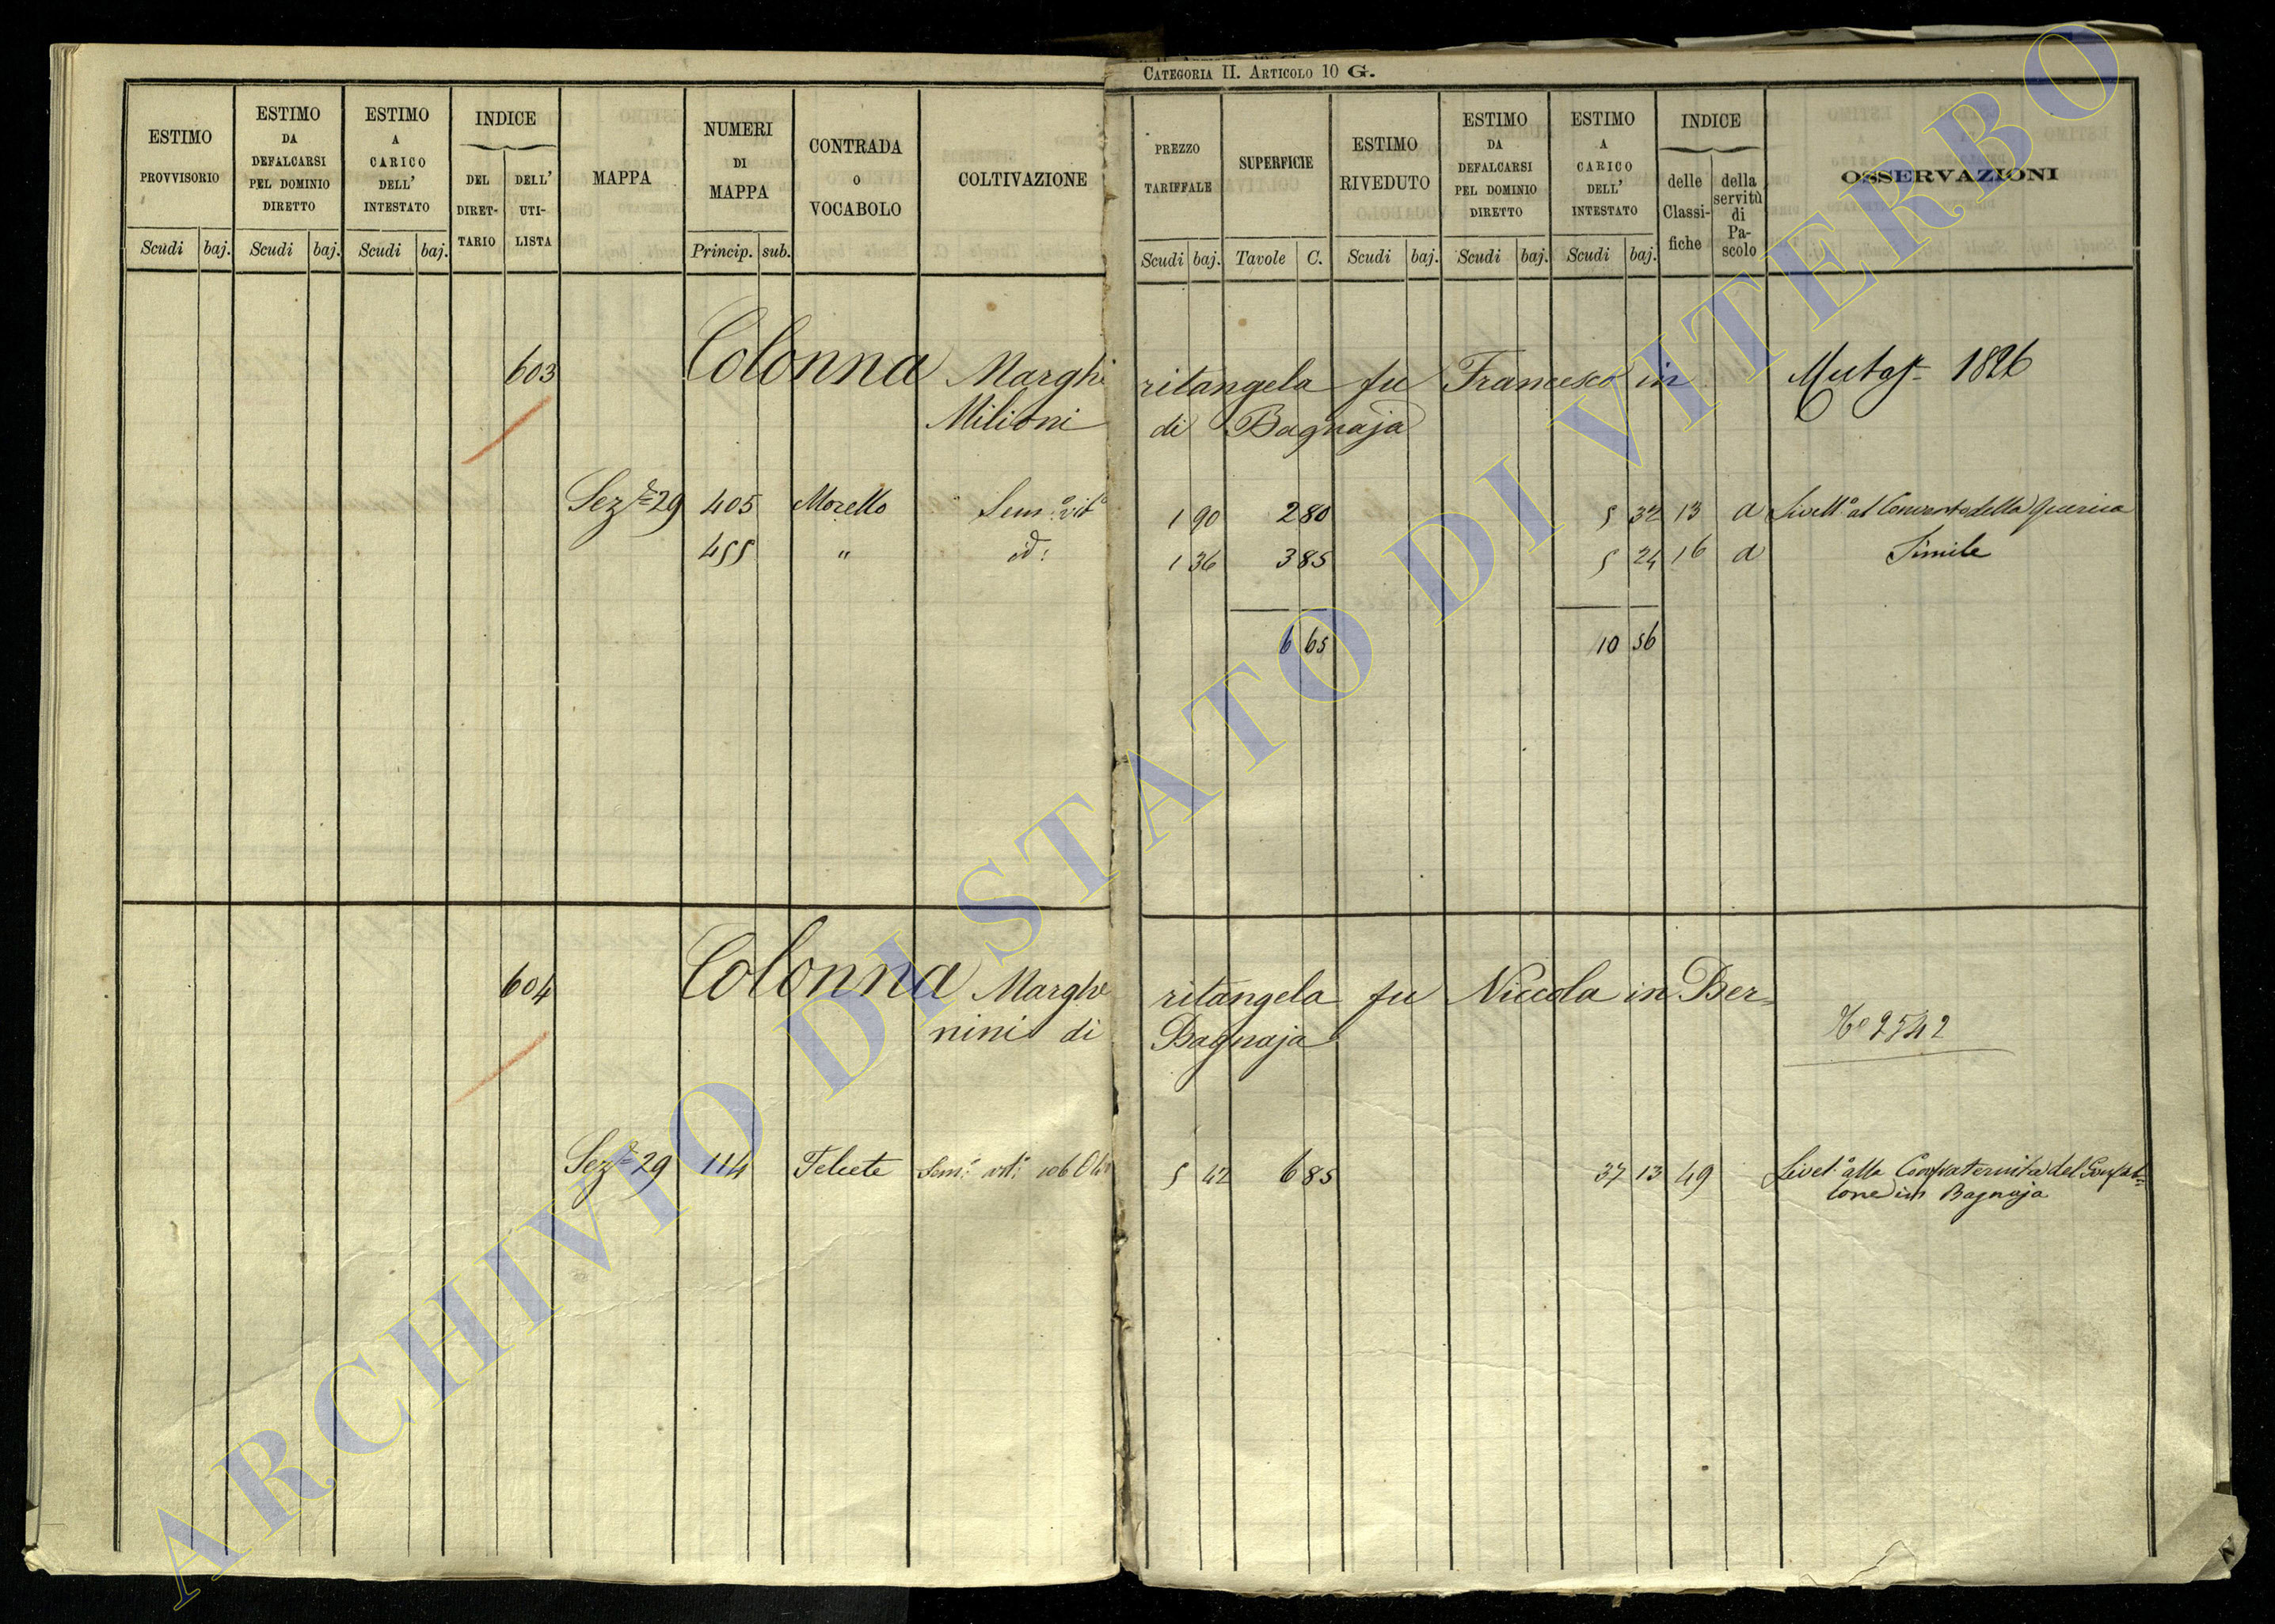 CATEGORIA II. ARTICOLO 10 G.
ESTIMO PROVVISORIO
ESTIMO DA DEFALCARSI PEL DOMINIO DIRETTO
ESTIMO A CARICO DELL' INTESTATO
INDICE
DEL DIRETTARIO
DELL' UTILISTA
MAPPA
NUMERI DI MAPPA
CONTRADA O VOCABOLO
COLTIVAZIONE
PREZZO TARIFFALE
SUPERFICIE
ESTIMO RIVEDUTO
ESTIMO DA DEFALCARSI PEL DOMINIO DIRETTO
ESTIMO A CARICO DELL' INTESTATO
INDICE
delle Classifiche
della servitù di Pascolo
OSSERVAZIONI
Scudi baj. Scudi baj. Scudi baj. Princip. sub. Scudi baj. Tavole C. Scudi baj. Scudi baj. Scudi baj.
603 Colonna Margheritangela fu Francesco in 1826
Milioni di Bagnaja
Sez. 29 405 Morello Sem.o vit.o 1 90 2 80 5 32 13 a Livell.o al Convento della Quercia
455 " id: 1 36 3 85 5 24 16 a Simile
6 65 10 56
604 Colonna Margheritangela fu Niccola in Ber=
nini di Bagnaja
No 2542
Sez. 29 114 Felcete Sem.o vit.o 5 42 6 85 37 13 49 Livel.o alla Confraternita del Gonfal=
lone in Bagnaja
ARCHIVIO DI STATO DI VITERBO